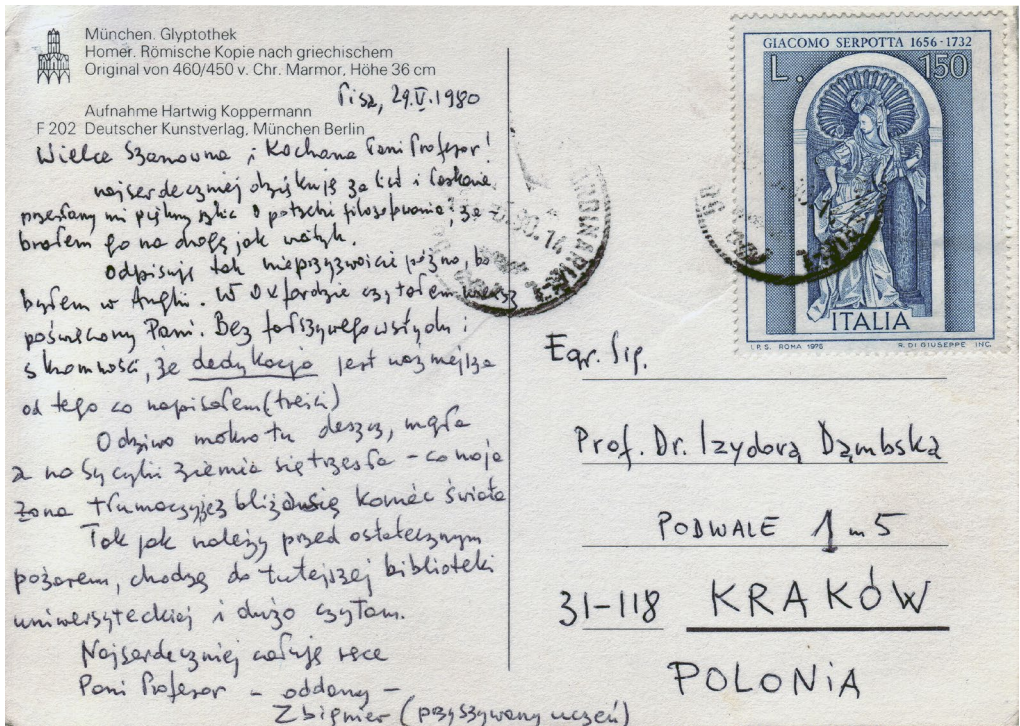 München. Glyptothek
Homer. Römische Kopie nach griechischem
Original von 460/450 v. Chr. Marmor, Höhe 36 cm
Aufnahme Hartwig Koppermann
F 202 Deutscher Kunstverlag, München Berlin
29.V.1980
Wielce Szanowna i Kochana Pani Profesor!
najserdeczniej dziękuję za list i łaskawie
przesłany mi piękny szkic o potrzebie filozofowania; za
brałem go na drogę jak
Odpisuję tak nieprzyzwoicie późno, bo
byłem w Anglii. W Oxfordzie czytałem wiersz
poświęcony Pani. Bez fałszywego wstydu i
skromności, że dedykacja jest ważniejsza
od tego co napisałem (treści)
O dziwo mokro tu deszcz, mgła
a na Sycylii ziemia się trzęsła - co moja
żona tłumaczy, że zbliża się koniec świata
Tak jak należy przed ostatecznym
pożarem, chodzę do tutejszej biblioteki
uniwersyteckiej i dużo czytam.
Najserdeczniej całuję ręce
Pani Profesor - oddany -
Zbigniew (przyszywany uczeń)
GIACOMO SERPOTTA 1656-1732
L. 150
ITALIA
I.P.S. ROMA 1976 R. DI GIUSEPPE INC.
Egr. Sig.
Prof. Dr. Izydora Dąmbska
PODWALE 1 m 5
31-118 KRAKÓW
POLONIA